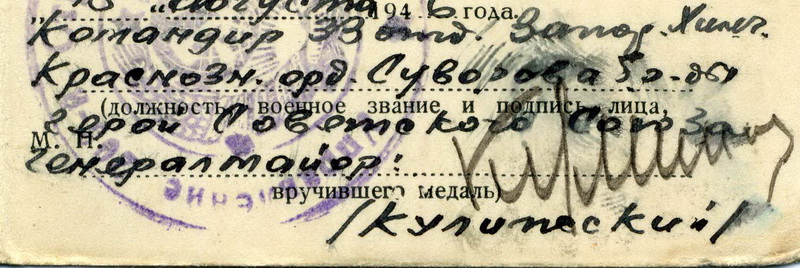 "Августа 1946 года.
Командир 33 отд. Запор. Хинг.
Краснозн. орд. Суворова бр-ды
(должность, военное звание и подпись лица,
Герой Советского Союза
М. П.
генерал майор:
вручившего медаль)
/Кулипский/